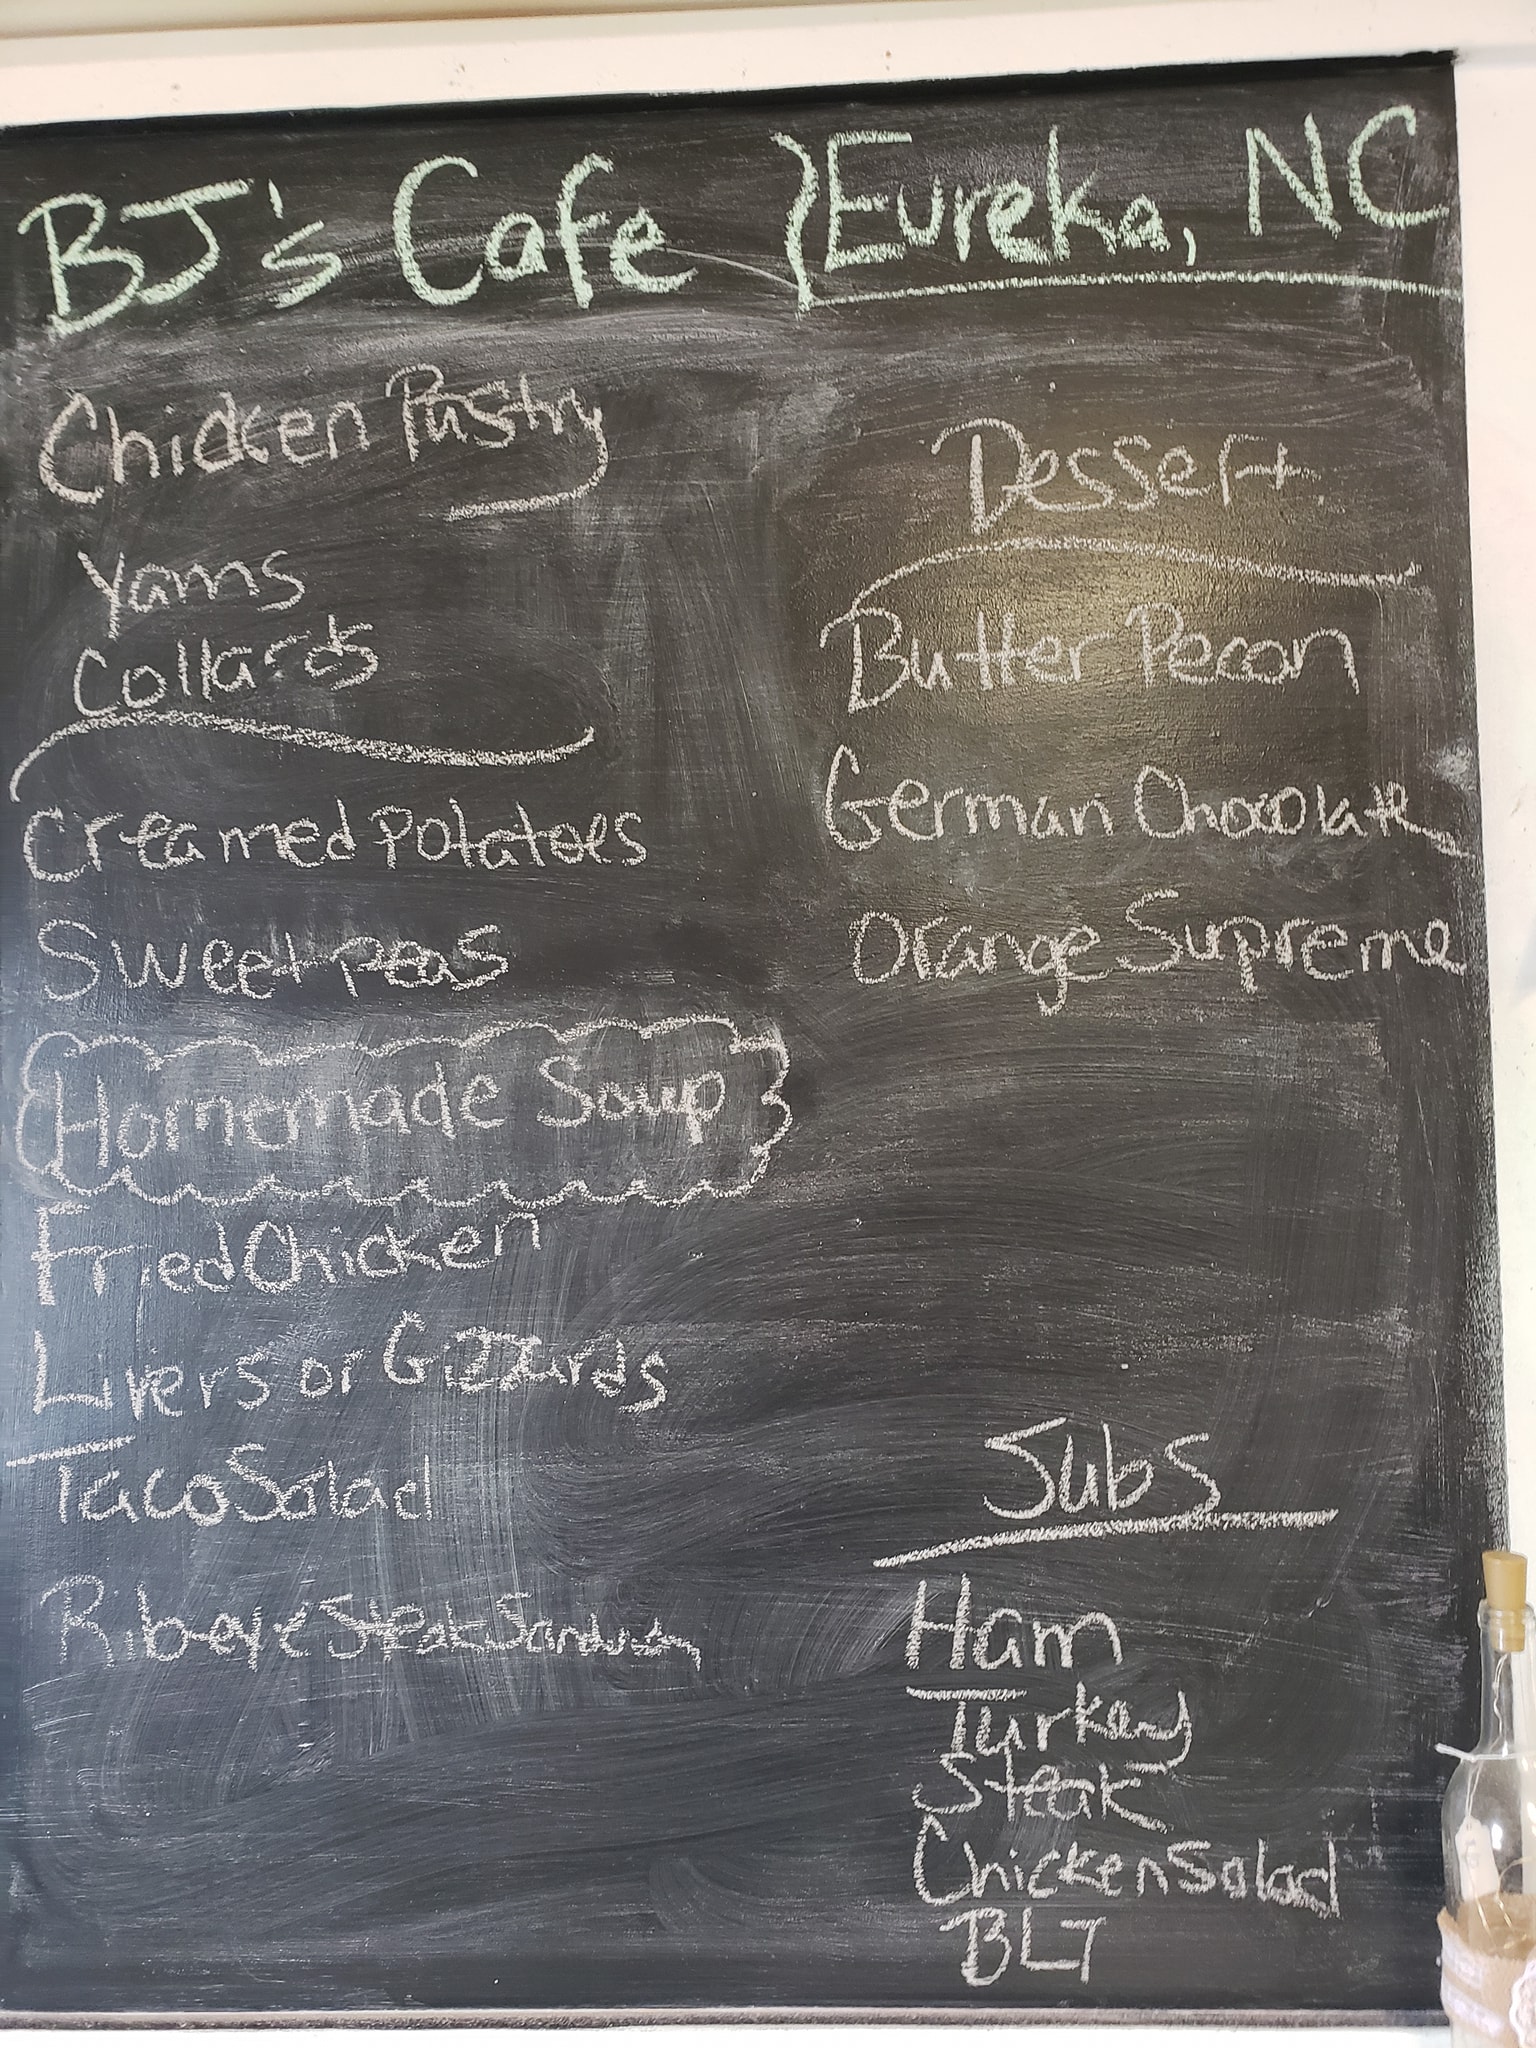 BJ's Cafe Eureka, NC
Chicken Pastry
Yams
Collards
Creamed Potatoes
Sweet peas
Homemade Soup
Fried Chicken
Livers or Gizzards
Taco Salad
Ribeye Steak Sandwich
Dessert
Butter Pecon
German Chocolate
Orange Supreme
Subs
Ham
Turkey
Steak
Chicken Salad
BLT